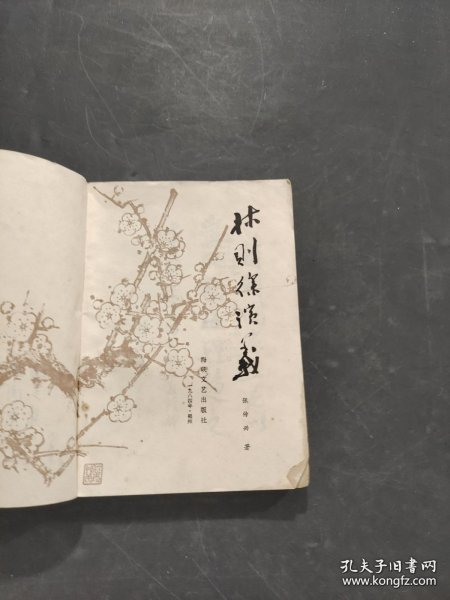 林则徐演义
张传兴 著
海峡文艺出版社
一九八四年·福州
孔夫子旧书网
www.kongfz.com